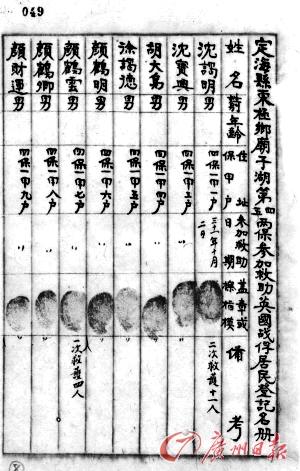 049
定海縣東極鄉廟子湖第四五兩保參加救助英國戰俘居民登記名冊
姓名 齡年 住址 保甲戶 參加救助日期 蓋章或捺指模 備考
沈謁明 男 四保一甲一戶 三十一年十月二日 二次救護十一人
沈寶興 男 四保一甲三戶 〃
胡大為 男 四保一甲四戶 〃
徐謁德 男 四保一甲五戶 〃
顏鶴明 男 四保一甲六戶 〃
顏鶴雲 男 四保一甲七戶 〃 一次救護四人
顏鶴卿 男 四保一甲八戶 〃
顏財運 男 四保一甲九戶 〃
廣州日报